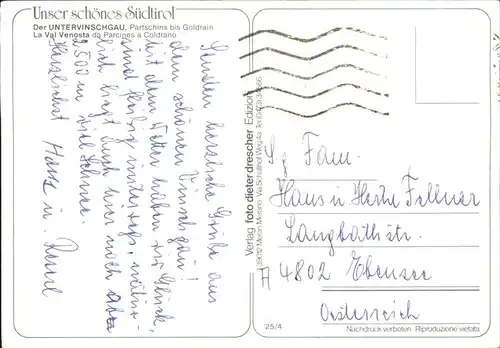 Unser schönes Südtirol
Der UNTERVINSCHGAU, Partschins bis Goldrain
La Val Venosta da Parcines a Coldrano
Senden herzliche Grüße aus
dem schönen Vinschgau!
Mit dem Wetter haben wir Glück,
sind fleißig unterwegs, natür-
lich liegt auch hier noch ab
2500 m viel Schnee.
Herzlichst Hans u.
Verlag foto dieter drescher Edizioni
39012 Meran Merano · Via Schallhof Weg 4a
S.g. Fam.
Hans u Herta Fellner
Langbathstr.
A 4802 Ebensee
Österreich
25/4
Nachdruck verboten · Riproduzione vietata